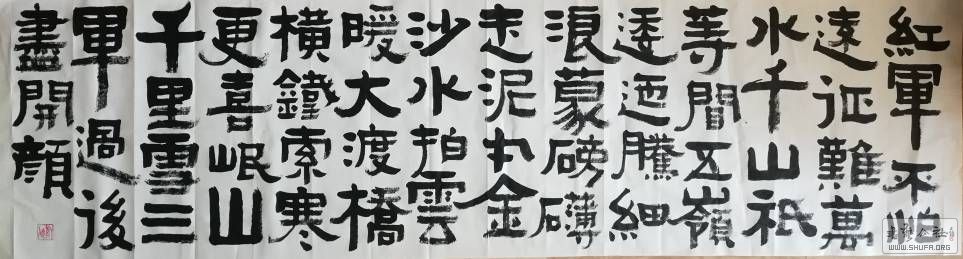 紅軍不怕
遠征難萬
水千山祇
等間五嶺
逶迤騰細
浪蒙磅礴
走泥丸金
沙水拍雲
暖大渡橋
橫鐵索寒
更喜岷山
千里雪三
軍過後
盡開顏
WWW.SHUFA.ORG